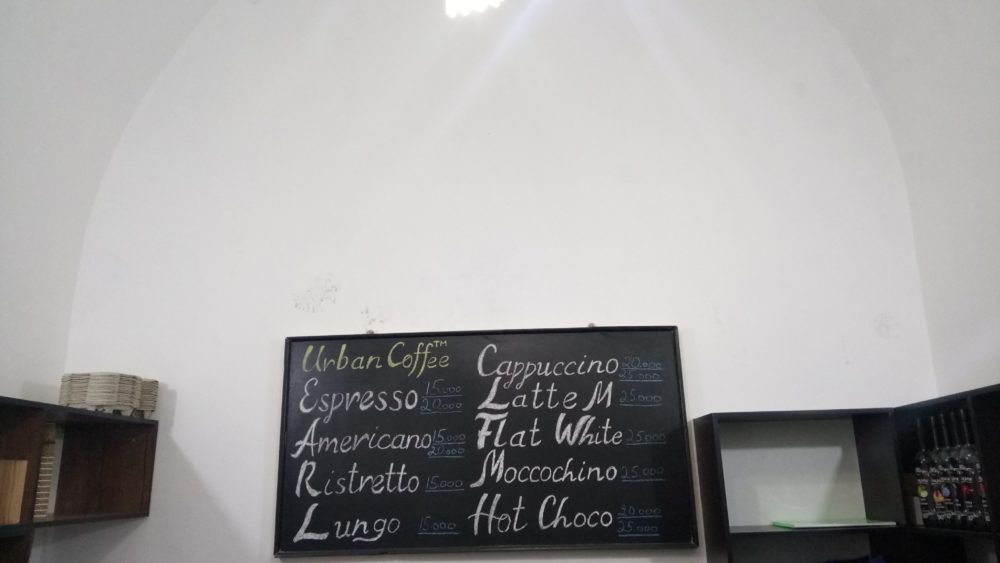 Urban Coffee™
Espresso 15.000
20.000
Americano 15.000
20.000
Ristretto 15.000
Lungo 15.000
Cappuccino 20.000
25.000
Latte M 25.000
Flat White 25.000
Moccochino 25.000
Hot Choco 20.000
25.000